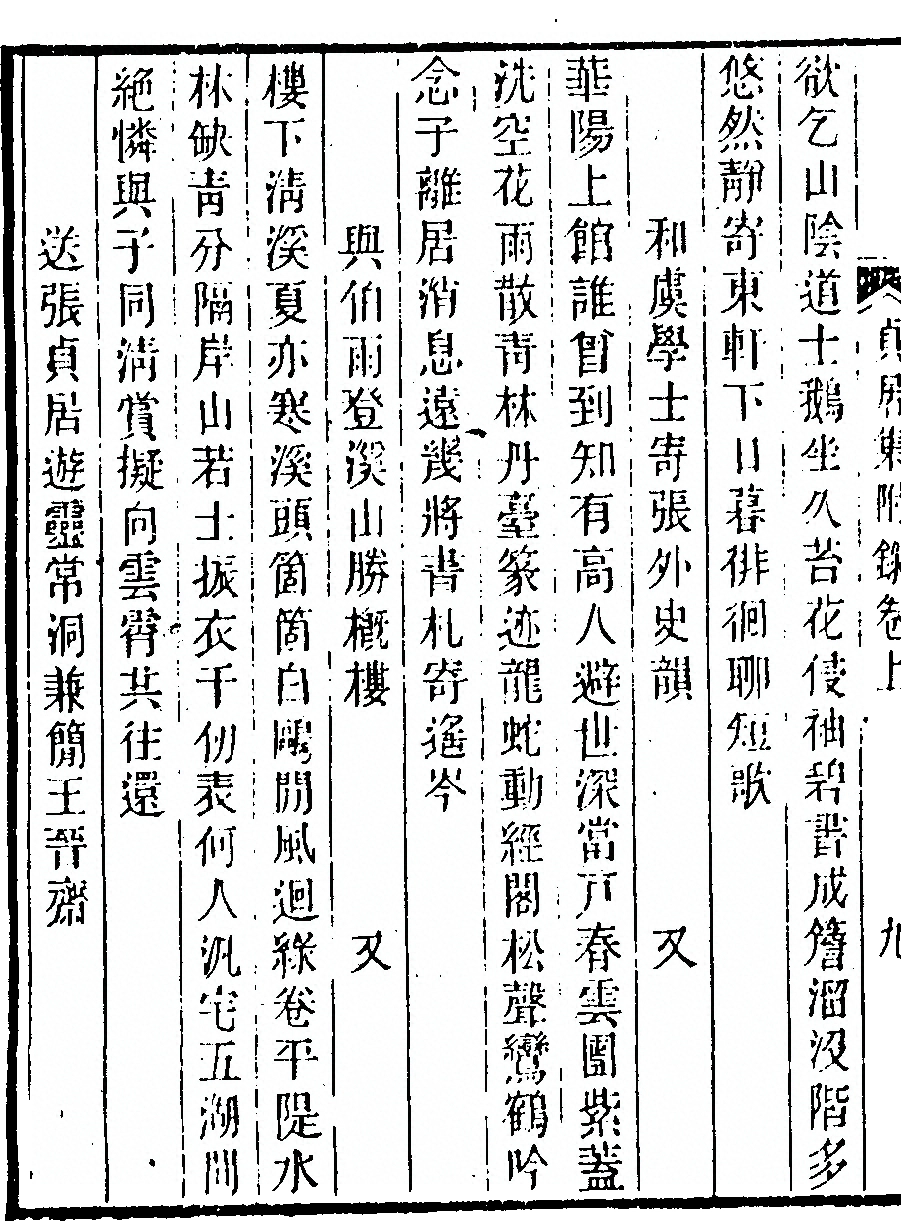 貞居集附錄卷上 九
欲乞山陰道士鵝坐久苔花侵袖碧書成簷溜没階多
悠然靜寄東軒下日暮徘徊聊短歌
和虞學士寄張外史韻 又
華陽上館誰曾到知有高人避世深當戸春雲團紫蓋
洗空花雨散青林丹臺篆迹龍蛇動經閣松聲鸞鶴吟
念子離居消息遠幾將書札寄遙岑
與伯雨登溪山勝槪樓 又
樓下淸溪夏亦寒溪頭箇箇白鷗閒風迴綠卷平隄水
林缺靑分隔岸山若士振衣千仞表何人汎宅五湖間
絕憐與子同淸賞擬向雲霄共往還
送張貞居遊靈常洞兼簡王晉齋